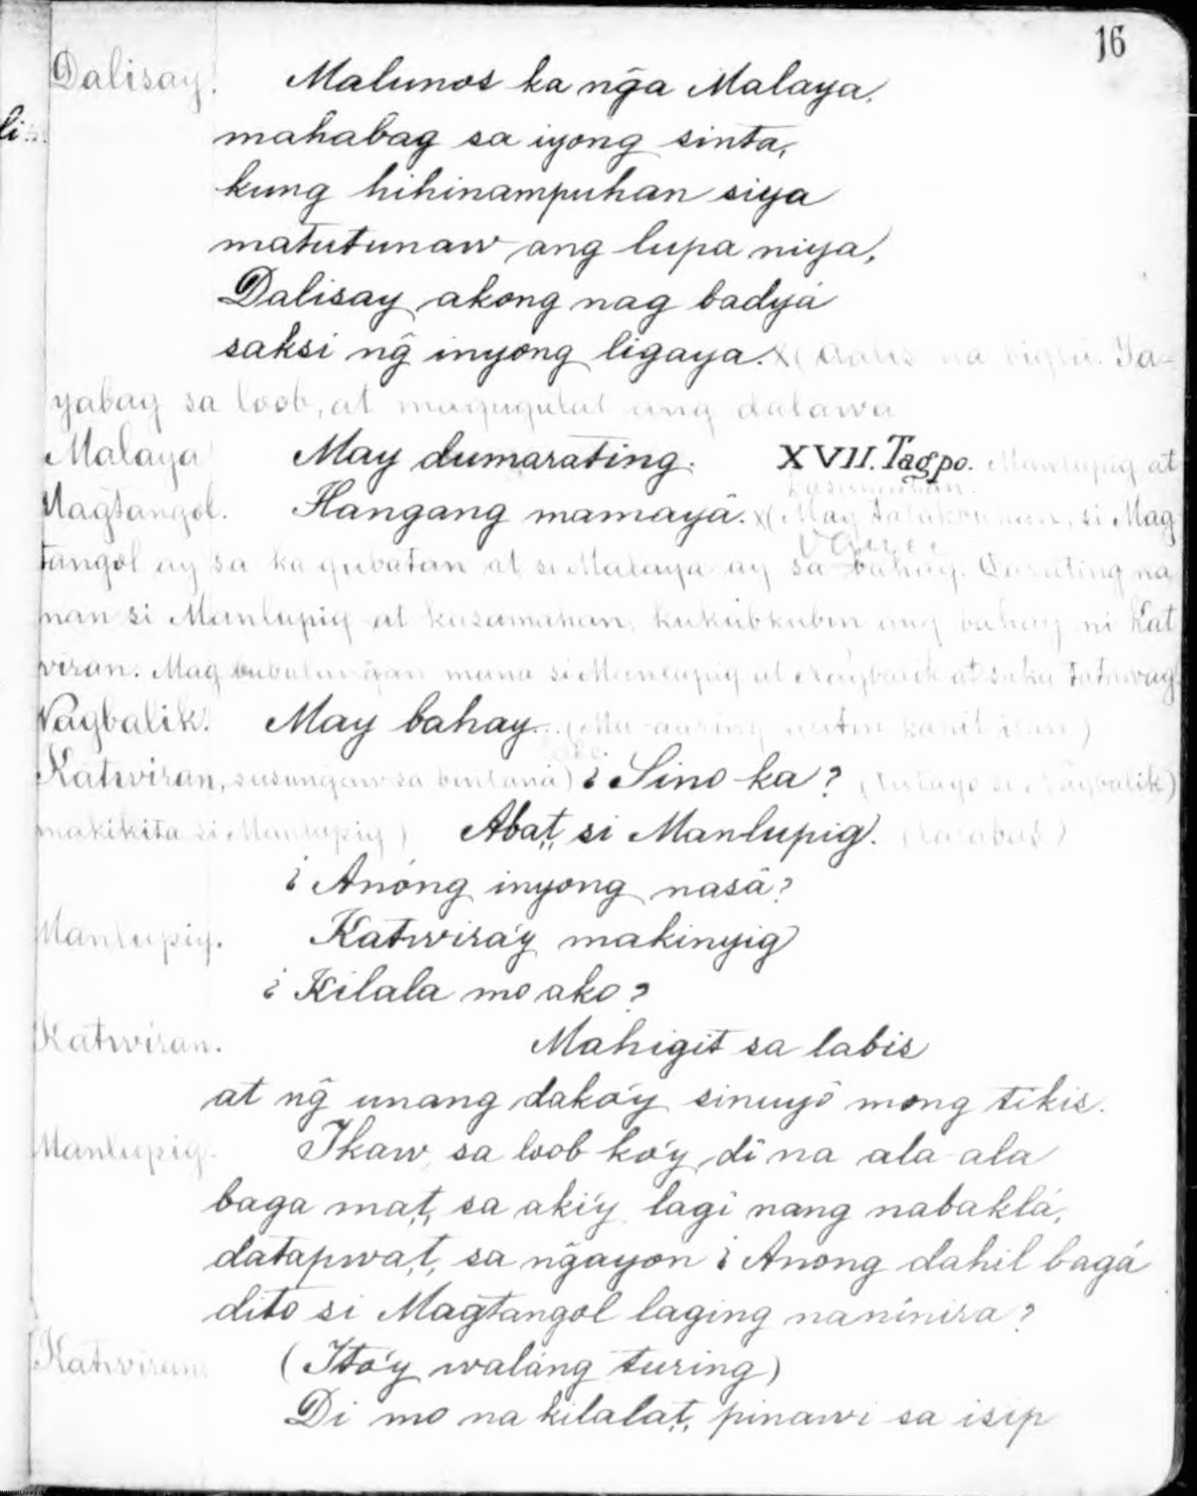 16
Dalisay. Malunos ka ng̃a Malaya,
mahabag sa iyong sinta,
kung hihinampuhan siya
matutunaw ang lupa niya,
Dalisay akong nag badyá
saksi ng̃ inyong ligaya. (aalis na bigla. Ya-
yabag sa loob, at magugulat ang dalawa
Malaya May dumarating. XVII. Tagpo. Manlupig at
kasamahan.
Magtangol. Hangang mamayâ. (May si Mag
tangol ay sa ka gubatan at si Malaya ay sa bahay. Darating na
man si Manlupig at kasamahan, kukubkubin ang bahay ni Kat
wiran. Mag bubulung̃an muna si Manlupig at Nagbalik at saka tatawag
Nagbalik. May bahay...
Katwiran, susung̃aw sa bintana) ¿Sino ka? (tatago si Nagbalik)
makikita si Manlupig) Abat, si Manlupig.
¿Anóng inyong nasâ?
Manlupig. Katwira'y makinyig
¿Kilala mo ako?
Katwiran. Mahigit sa labis
at ng̃ unang dako'y sinuyô mong tikis.
Manlupig. Ikaw sa loob ko'y di na ala-ala
baga mat, sa aki'y lagi nang nabaklá,
datapwat, sa ng̃ayon ¿Anong dahil bagá
dito si Magtangol laging naninira?
Katwiran. (Ito'y waláng turing)
Di mo na kilalat, pinawi sa isip